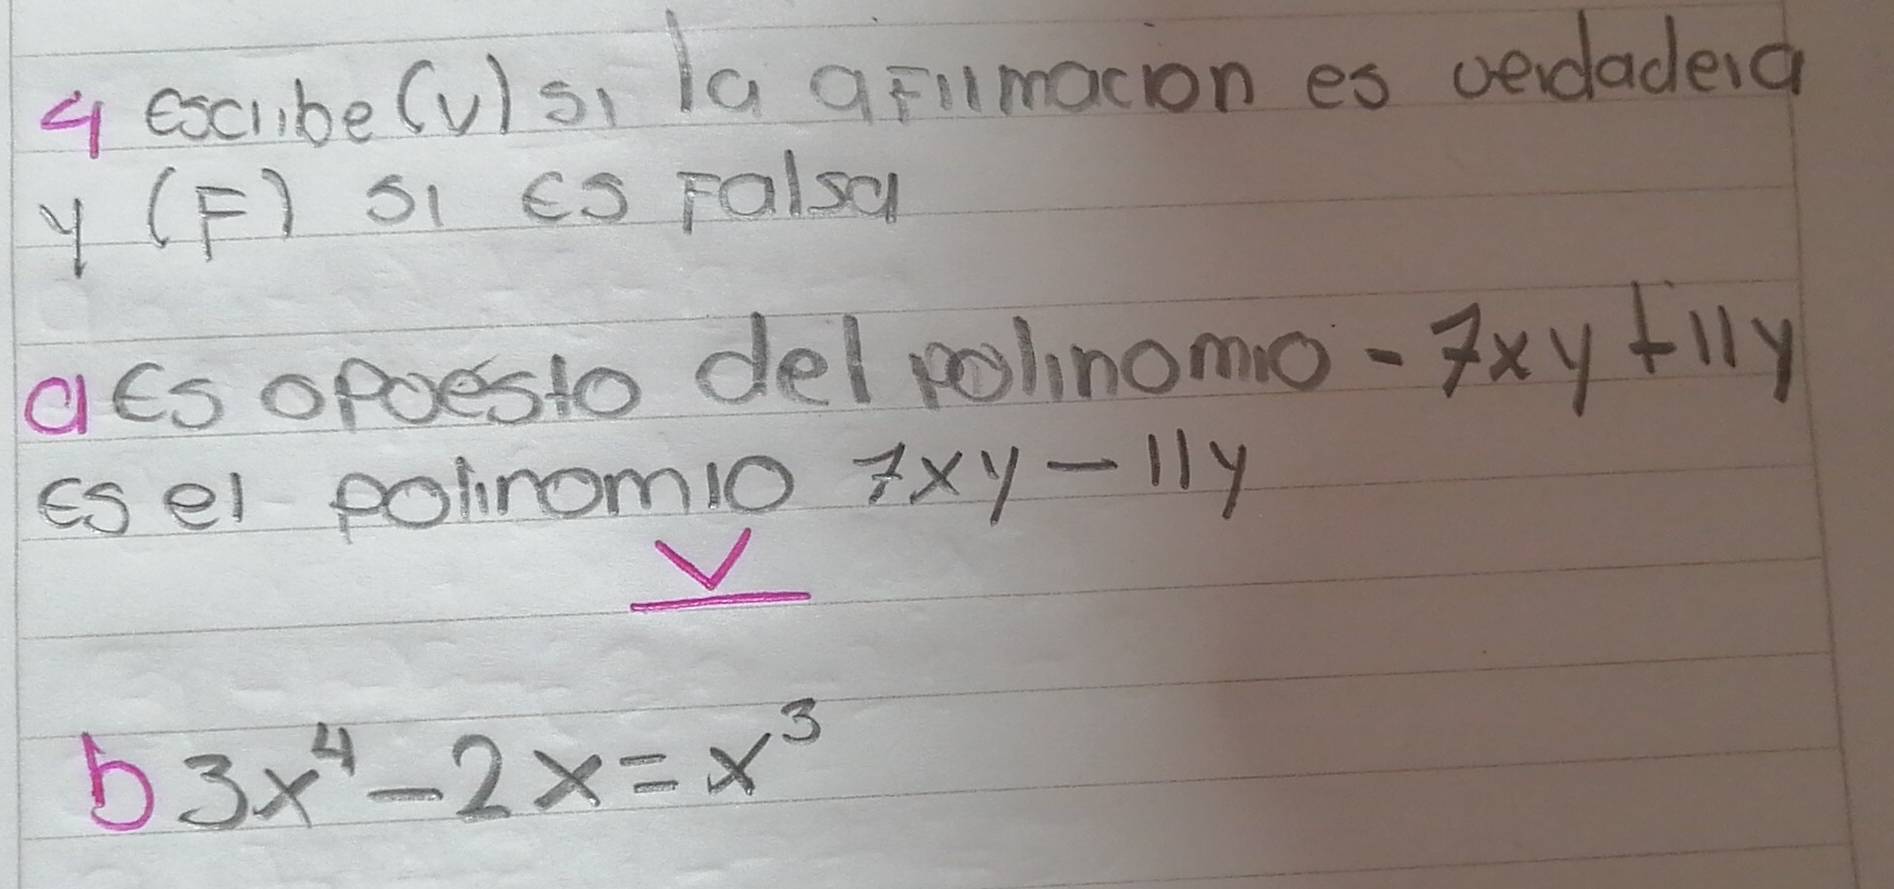 4 escribe (v) si la afirmacion es verdadera
y (F) si es Falsa
a Es opoesto del polinomio - 7xy + 11y
es el polinomio 7xy - 11y
V
b 3x⁴ - 2x = x³